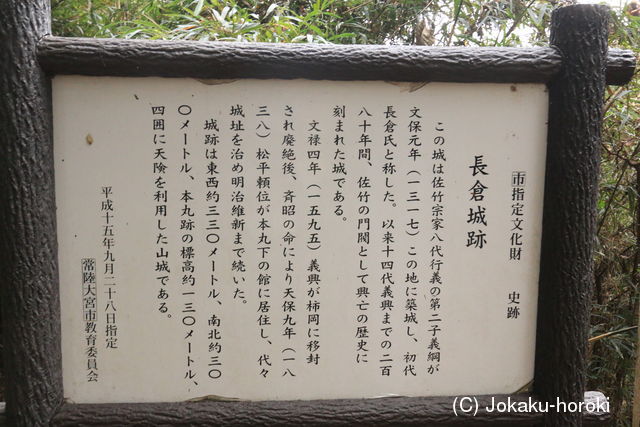 市指定文化財　史跡
長倉城跡
この城は佐竹宗家八代行義の第二子義綱が
文保元年（一三一七）この地に築城し、初代
長倉氏と称した。以来十四代義興までの二百
八十年間、佐竹の門閥として興亡の歴史に
刻まれた城である。
文禄四年（一五九五）義興が柿岡に移封
され廃絶後、斉昭の命により天保九年（一八
三八）松平頼位が本丸下の館に居住し、代々
城址を治め明治維新まで続いた。
城跡は東西約三三〇メートル、南北約三〇
〇メートル、本丸跡の標高約一三〇メートル、
四囲に天険を利用した山城である。
平成十五年九月二十八日指定
常陸大宮市教育委員会
(C) Jokaku-horoki